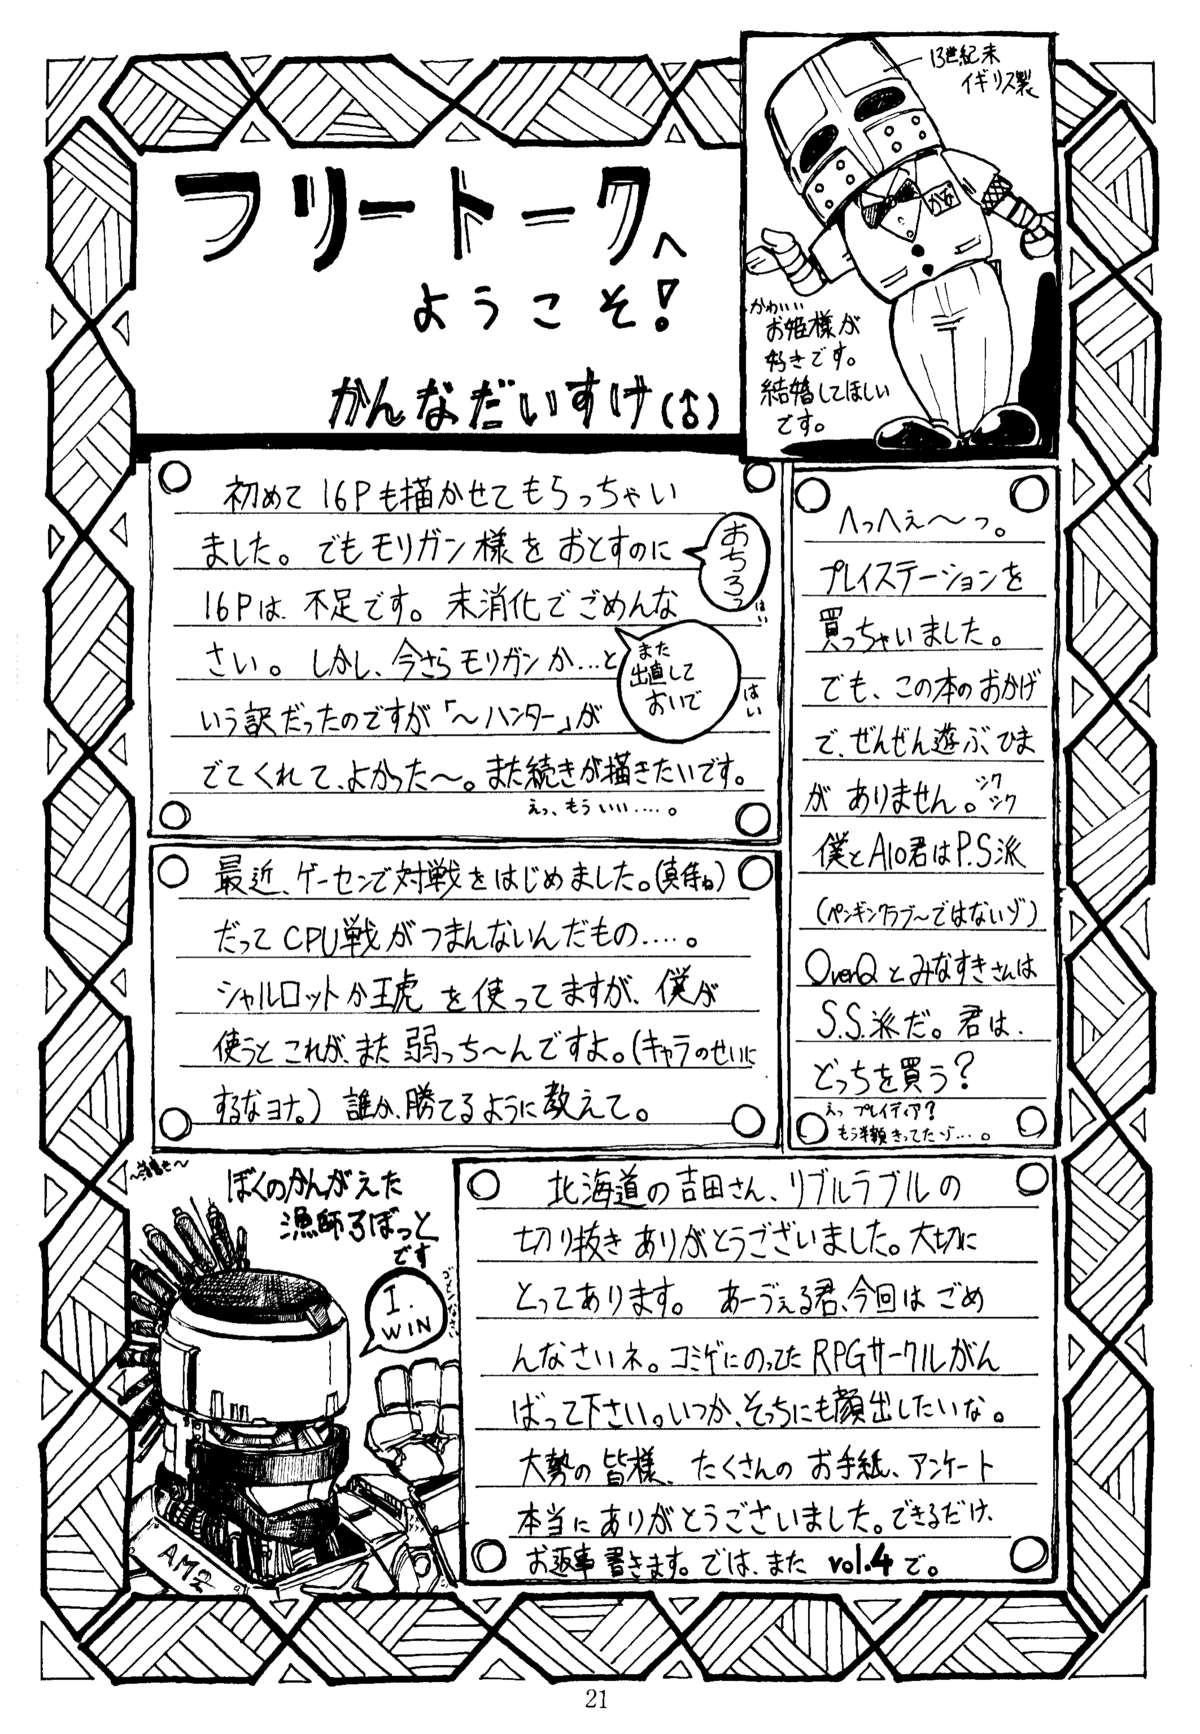 フリートークへ
ようこそ!
かんなだいすけ(♂)
13世紀末
イギリス製
かな
かわいい
お姫様が
好きです。
結婚してほしい
です。
初めて16Pも描かせてもらっちゃい
ました。でもモリガン様をおとすのに
16Pは、不足です。未消化でごめんな
さい。しかし、今さらモリガンか…と
いう訳だったのですが「～ハンター」が
でてくれて、よかった～。また続きが描きたいです。
えっ、もういい……。
おちろっ
はい
また
出直して
おいで
はい
へっへぇ～っ。
プレイステーションを
買っちゃいました。
でも、この本のおかげ
で、ぜんぜん遊ぶ、ひま
がありません。シクシク
僕とAlo君はP.S派
(ペンギンクラブ～ではないゾ)
OverQとみなすきさんは
S.S.派だ。君は、
どっちを買う?
えっ プレイディア?
もう半額きってたゾ…。
最近、ゲーセンで対戦をはじめました。(真侍ね)
だってCPU戦がつまんないんだもの……。
シャルロットか王虎を使ってますが、僕が
使うとこれが、また弱っち～んですよ。(キャラのせいに
するなヨナ。)誰か、勝てるように教えて。
ぼくのかんがえた
漁師ろぼっと
です
I.
WIN
AM2
北海道の吉田さん、リブルラブルの
切り抜きありがとうございました。大切に
とってあります。あーづぇる君、今回はごめ
んなさいネ。コミゲにのってたRPGサークルがん
ばって下さい。いつか、そっちにも顔出したいな。
大勢の皆様、たくさんのお手紙、アンケート
本当にありがとうございました。できるだけ、
お返事書きます。では、またvol.4で。
21